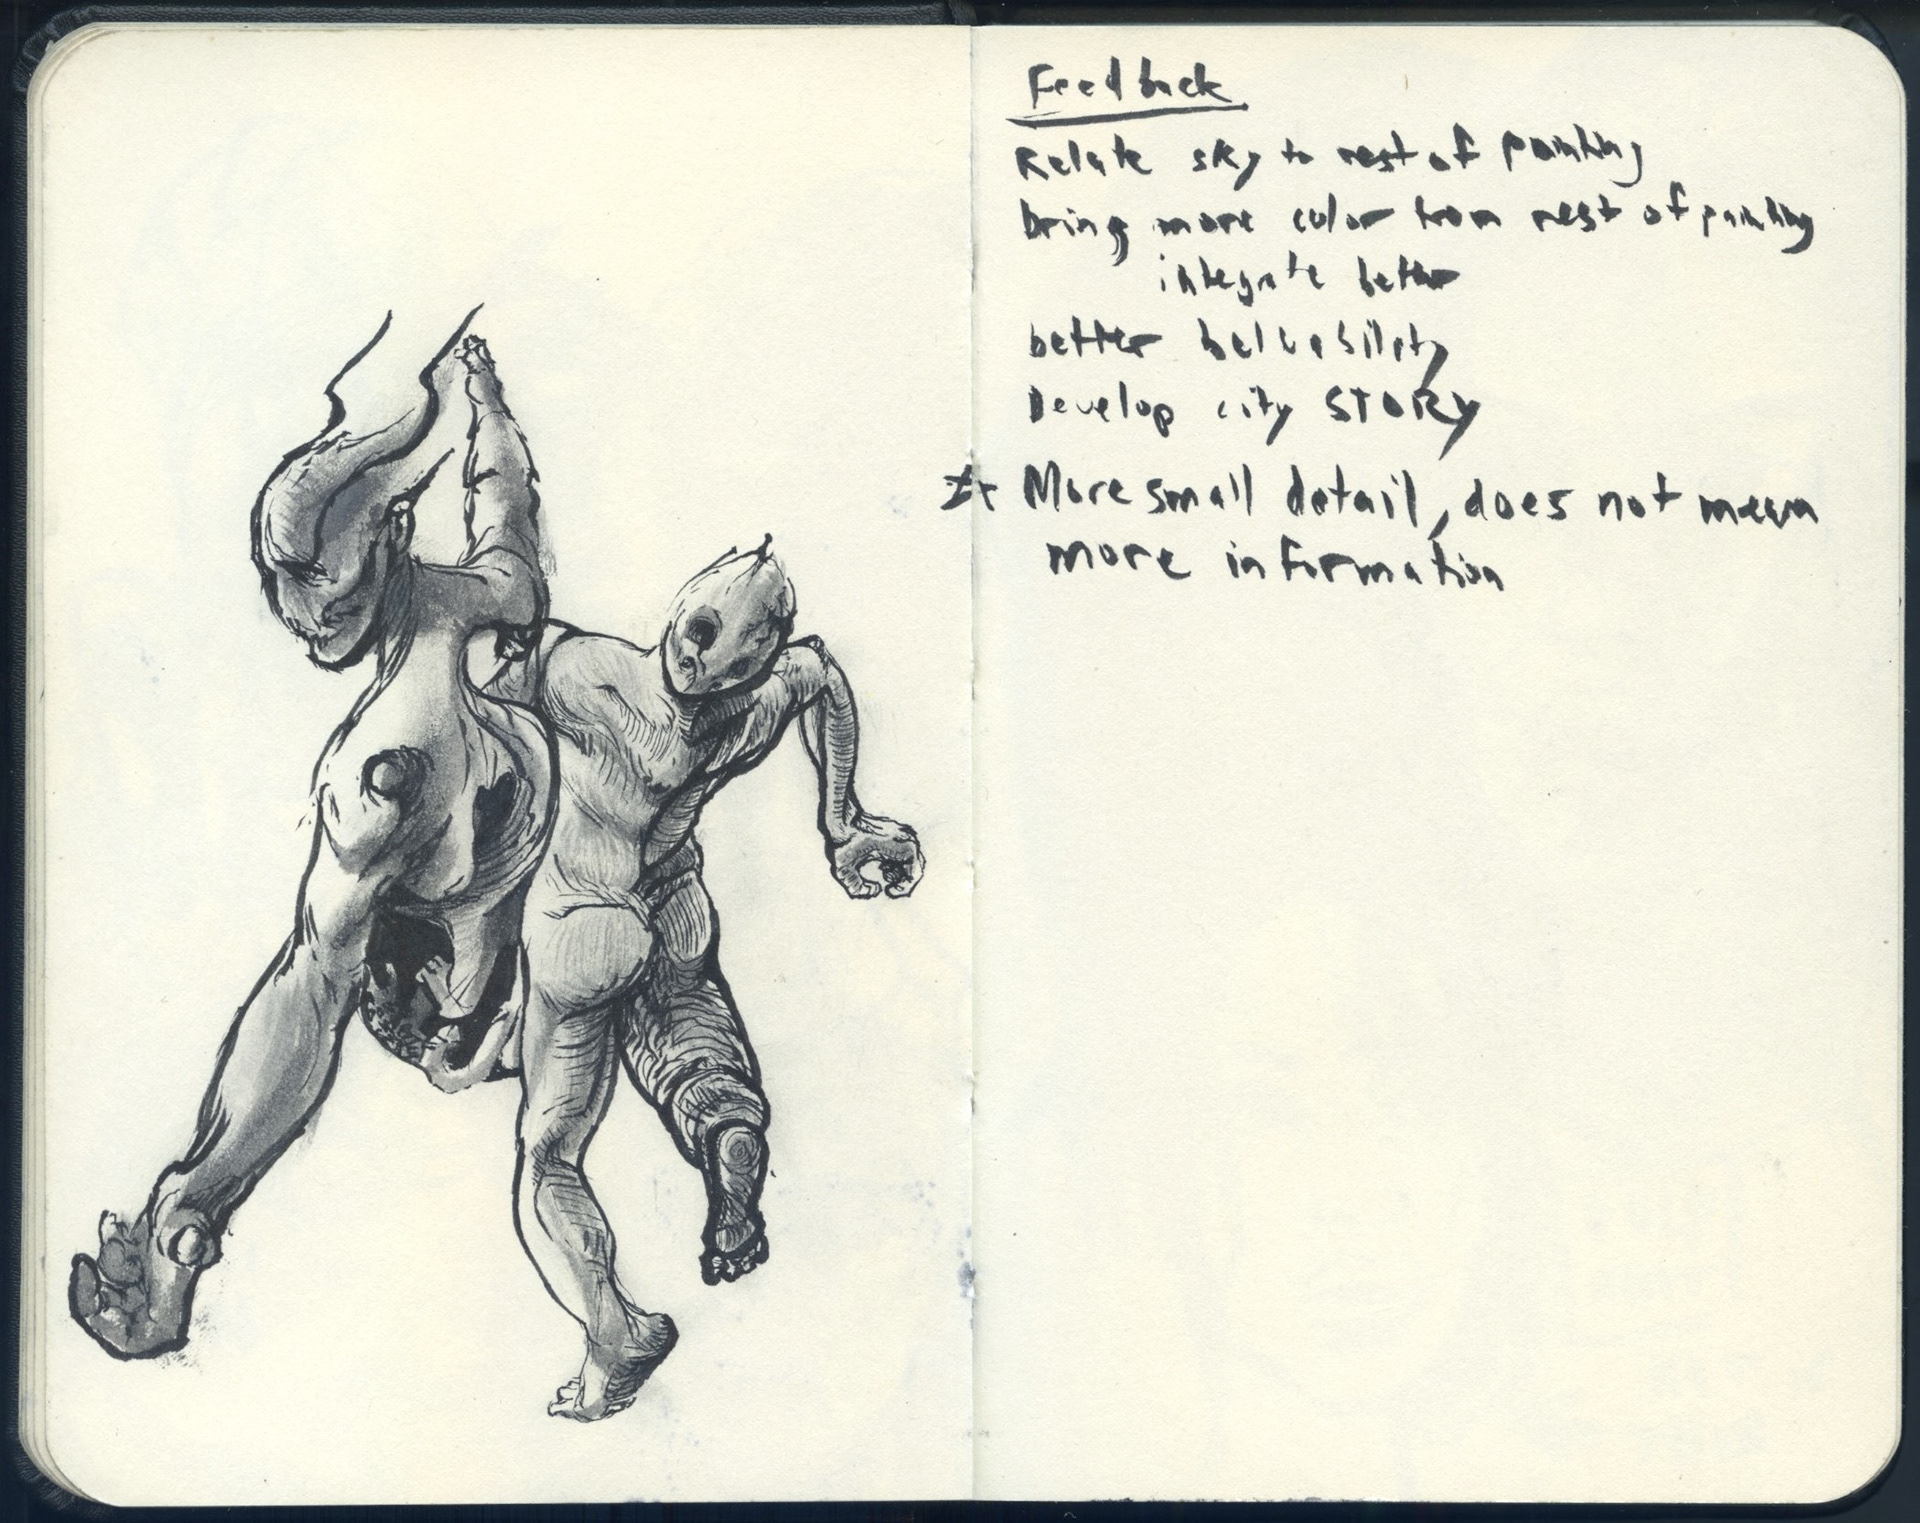 Feedback
Relate sky to rest of painting
bring more color from rest of painting
integrate better
better belivability
Develop city STORY
☆ More small detail, does not mean
more information